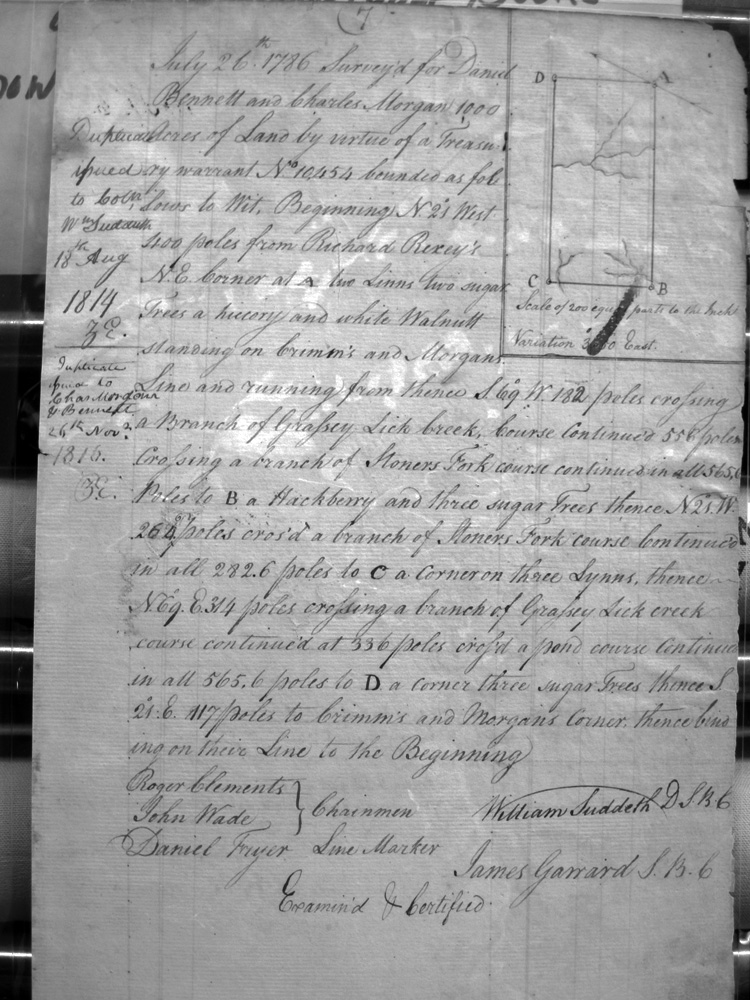 (7)
July 26th 1786 Survey'd for Daniel
Bennett and Charles Morgan 1000
Acres of Land by virtue of a Treasu-
ry warrant No 10,454 bounded as fol
lows to Wit, Beginning N 21 West
400 poles from Richard Rexey's
N.E. Corner at A two Linns two sugar
Trees a hiccory and white Walnutt
standing on Crimm's and Morgans
Line and running from thence S. 69 W. 182 poles crossing
a Branch of Grassey Lick creek, Course Continued 556 poles
Crossing a branch of Stoners Fork course continued in all 565.6
Poles to B a Hackberry and three sugar Trees thence N 21 W.
264 poles cros'd a branch of Stoners Fork course Continued
in all 282.6 poles to C a Corner on three Lynns, thence
N 69. E. 314 poles crossing a branch of Grassey Lick creek
course continued at 336 poles cros'd a pond course Continued
in all 565.6 poles to D a corner three sugar Trees thence S
21. E. 117 poles to Crimm's and Morgans Corner, thence bind
ing on their Line to the Beginning
Roger Clements
John Wade } Chainmen
Daniel Fryer Line Marker
William Suddeth D.S.B.C
James Garrard S.B.C
Examin'd & Certified
Duplicate
issued
to both
Wm Suddeth
18th Aug
1814
Duplicate
issued to
Chas Morgan
& Bennett
26th Novr
1816.
D A
C B
Scale of 200 equal parts to the Inch
Variation East.